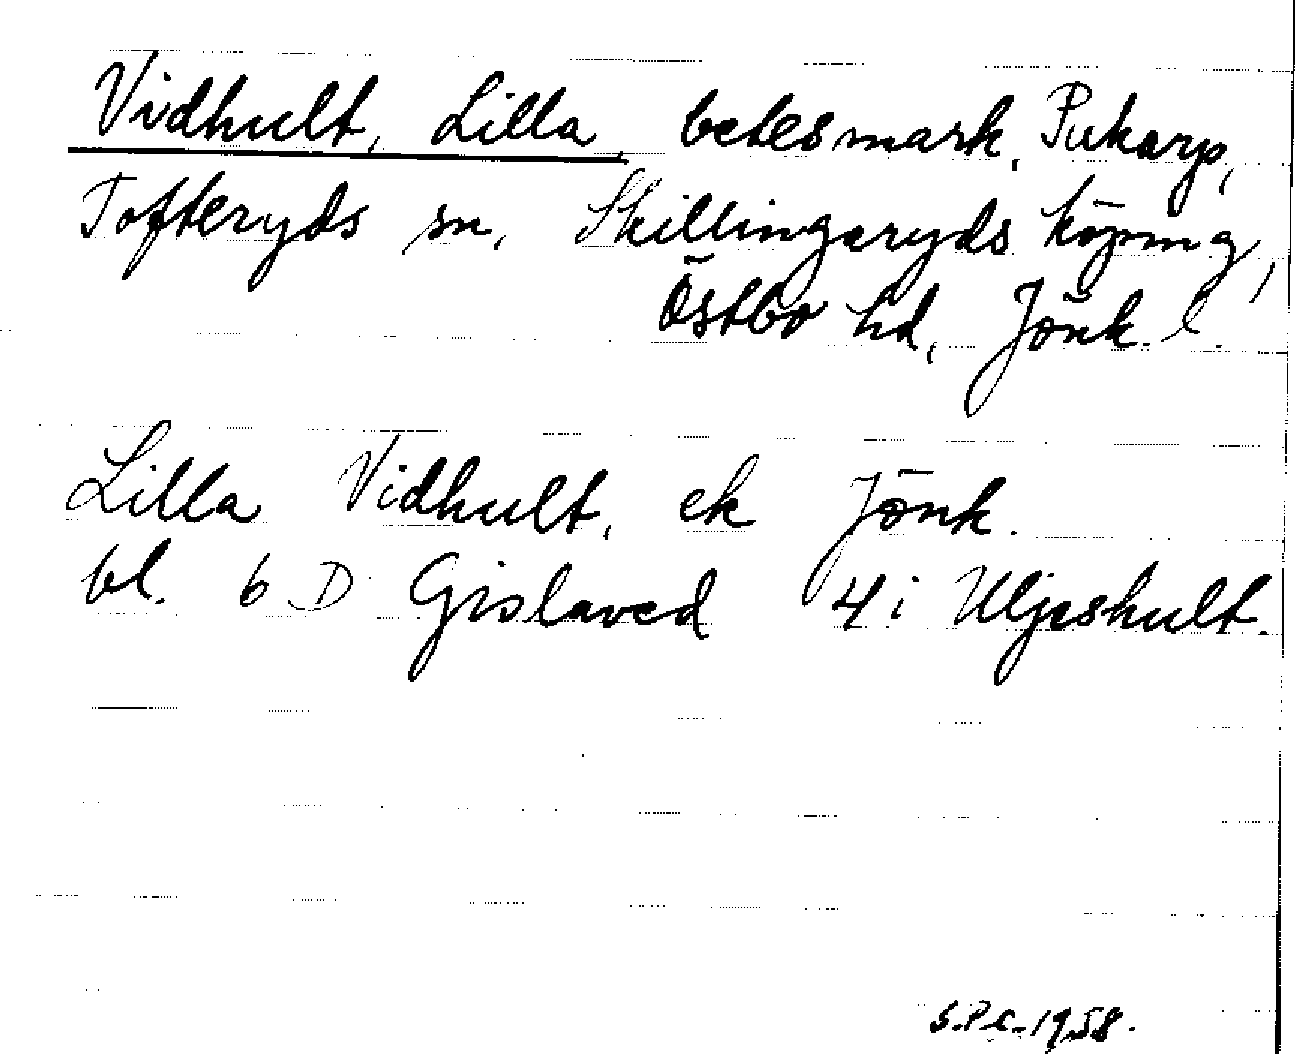 Vidhult, Lilla, betesmark, Pukarp,
Tofteryds sn, Skillingaryds köping,
Östbo hd, Jönk. l.
Lilla Vidhult, ek Jönk.
bl. 6 D Gislaved 4i Uljeshult.
S.P.C. 1958.